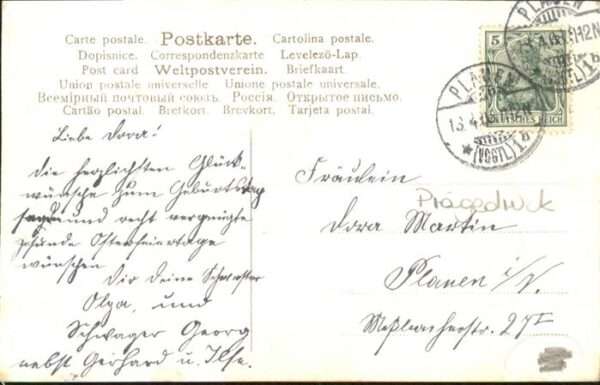 Carte postale. Postkarte. Cartolina postale.
Dopisnice. Correspondenzkarte Levelezö-Lap.
Post card Weltpostverein. Briefkaart.
Union postale universelle Unione postale universale.
Всемірный почтовый союзъ. Россія. Открытое письмо.
Cartão postal. Bretkort. Brevkort. Tarjeta postal.
PLAUEN
5
DEUTSCHES REICH
PLAUEN
(VOGTL.) 1b
(VOGTL.) 1b
Liebe Dora!
Die herzlichsten Glück-
wünsche zum Geburtstag
und recht vergnügte
gesunde Osterfeiertage
wünschen
Dir Deine Schwester
Olga, und
Schwager Georg
nebst Gerhard u. Ilse.
Fräulein
Prägedruck
Dora Martin
Plauen i/V.
27 I